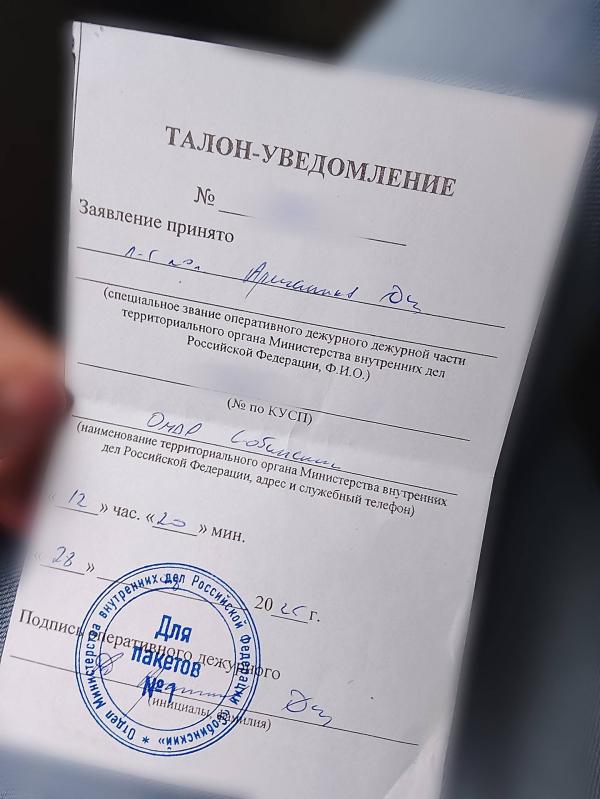 ТАЛОН-УВЕДОМЛЕНИЕ
№
Заявление принято
(специальное звание оперативного дежурного дежурной части
территориального органа Министерства внутренних дел
Российской Федерации, Ф.И.О.)
(№ по КУСП)
(наименование территориального органа Министерства внутренних
дел Российской Федерации, адрес и служебный телефон)
« 12 » час. « 20 » мин.
« 28 » 20 25 г.
Подпись оперативного дежурного
(инициалы, фамилия)
* Отдел Министерства внутренних дел Российской Федерации «Собинский»
Для
пакетов
№ 1